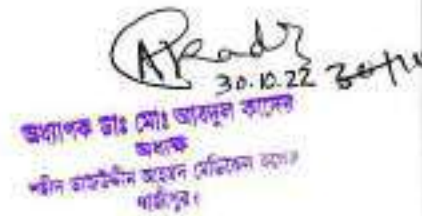 30.10.22
অধ্যাপক ডাঃ মোঃ আবদুল কাদের
অধ্যক্ষ
শহীদ তাজউদ্দীন আহমদ মেডিকেল কলেজ
গাজীপুর।